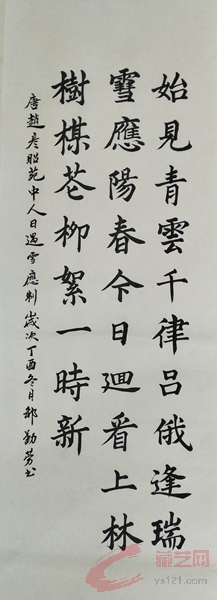 始見青雲千律呂俄逢瑞
雪應陽春今日迴看上林
樹楳花柳絮一時新
唐趙彥昭苑中人日遇雪應制 歲次丁酉冬月郝勤芳書
藏艺网
ys121.com